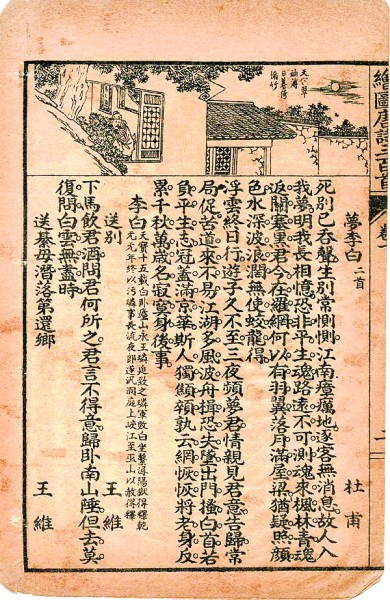 天寒翠
袖薄
日暮倚
脩竹
夢李白 二首 杜甫
死別已吞聲生別常惻惻江南瘴癘地逐客無消息故人入
我夢明我長相憶恐非平生魂路遠不可測魂來楓林青魂
返關塞黑君今在羅網何以有羽翼落月滿屋梁猶疑照顏
色水深波浪闊無使蛟龍得
浮雲終日行遊子久不至三夜頻夢君情親見君意告歸常
局促苦道來不易江湖多風波舟楫恐失墜出門搔白首若
負平生志冠蓋滿京華斯人獨顦顇孰云網恢恢將老身反
累千秋萬歲名寂寞身後事
李白 天寶十五載白臥廬山永王璘迫致之璘軍敗白坐繫潯陽獄得釋乾
元元年終以污璘事長流夜郎遂泛洞庭上峽江至巫山以赦得釋
送別 王維
下馬飲君酒問君何所之君言不得意歸臥南山陲但去莫
復問白雲無盡時
送綦毋潛落第還鄉 王維